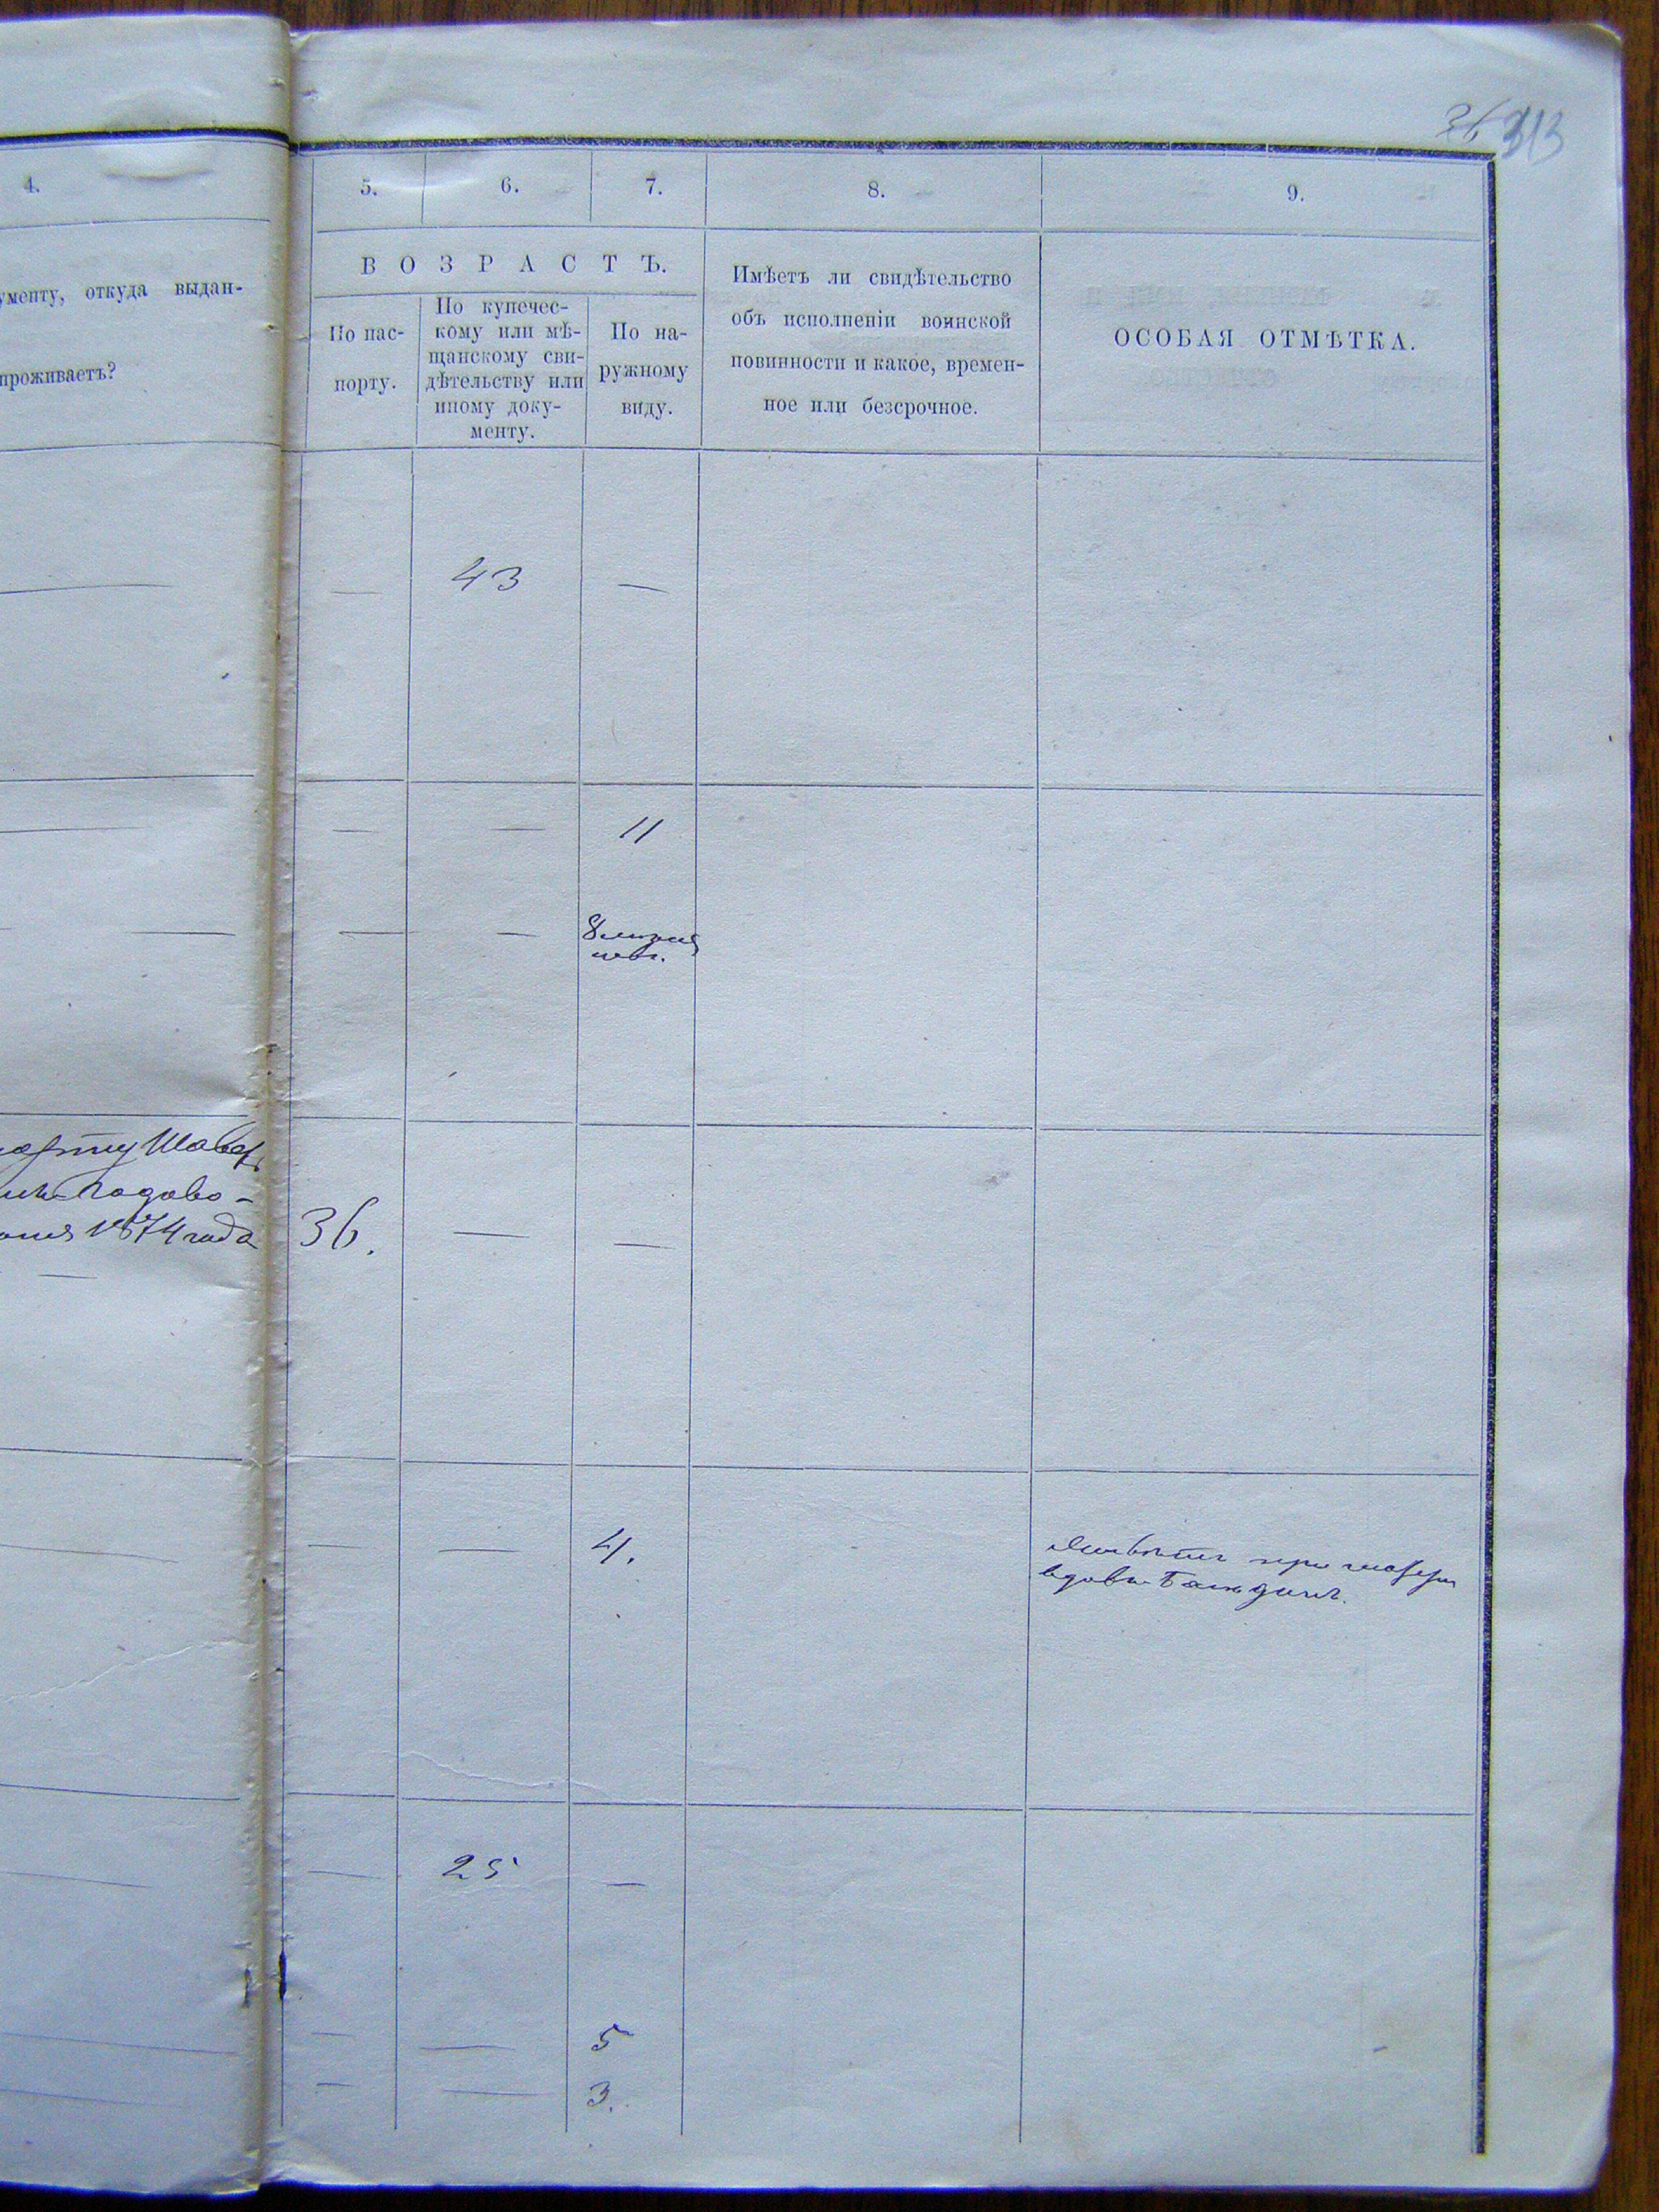 36 313
4.
5. 6. 7. 8. 9.
ументу, откуда выдан-
проживаетъ?
ВОЗРАСТЪ.
По пас-
порту.
По купечес-
кому или мѣ-
щанскому сви-
дѣтельству или
иному доку-
менту.
По на-
ружному
виду.
Имѣетъ ли свидѣтельство
объ исполненіи воинской
повинности и какое, времен-
ное или безсрочное.
ОСОБАЯ ОТМѢТКА.
— 43 —
— — 11
— — 8
1874 года 36. — —
— — 4.
при матери
вдовѣ
— 25 —
— — 5
— — 3.